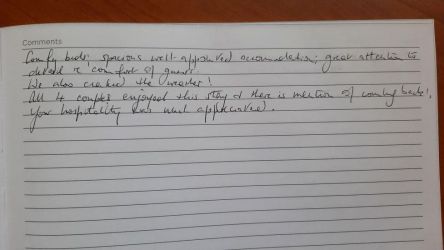 Comments
Comfy beds; spacious well-appointed accommodation; great attention to
detail & comfort of guests.
We also cracked the weather!
All 4 couples enjoyed this stay & there is mention of coming back!
Your hospitality was much appreciated.